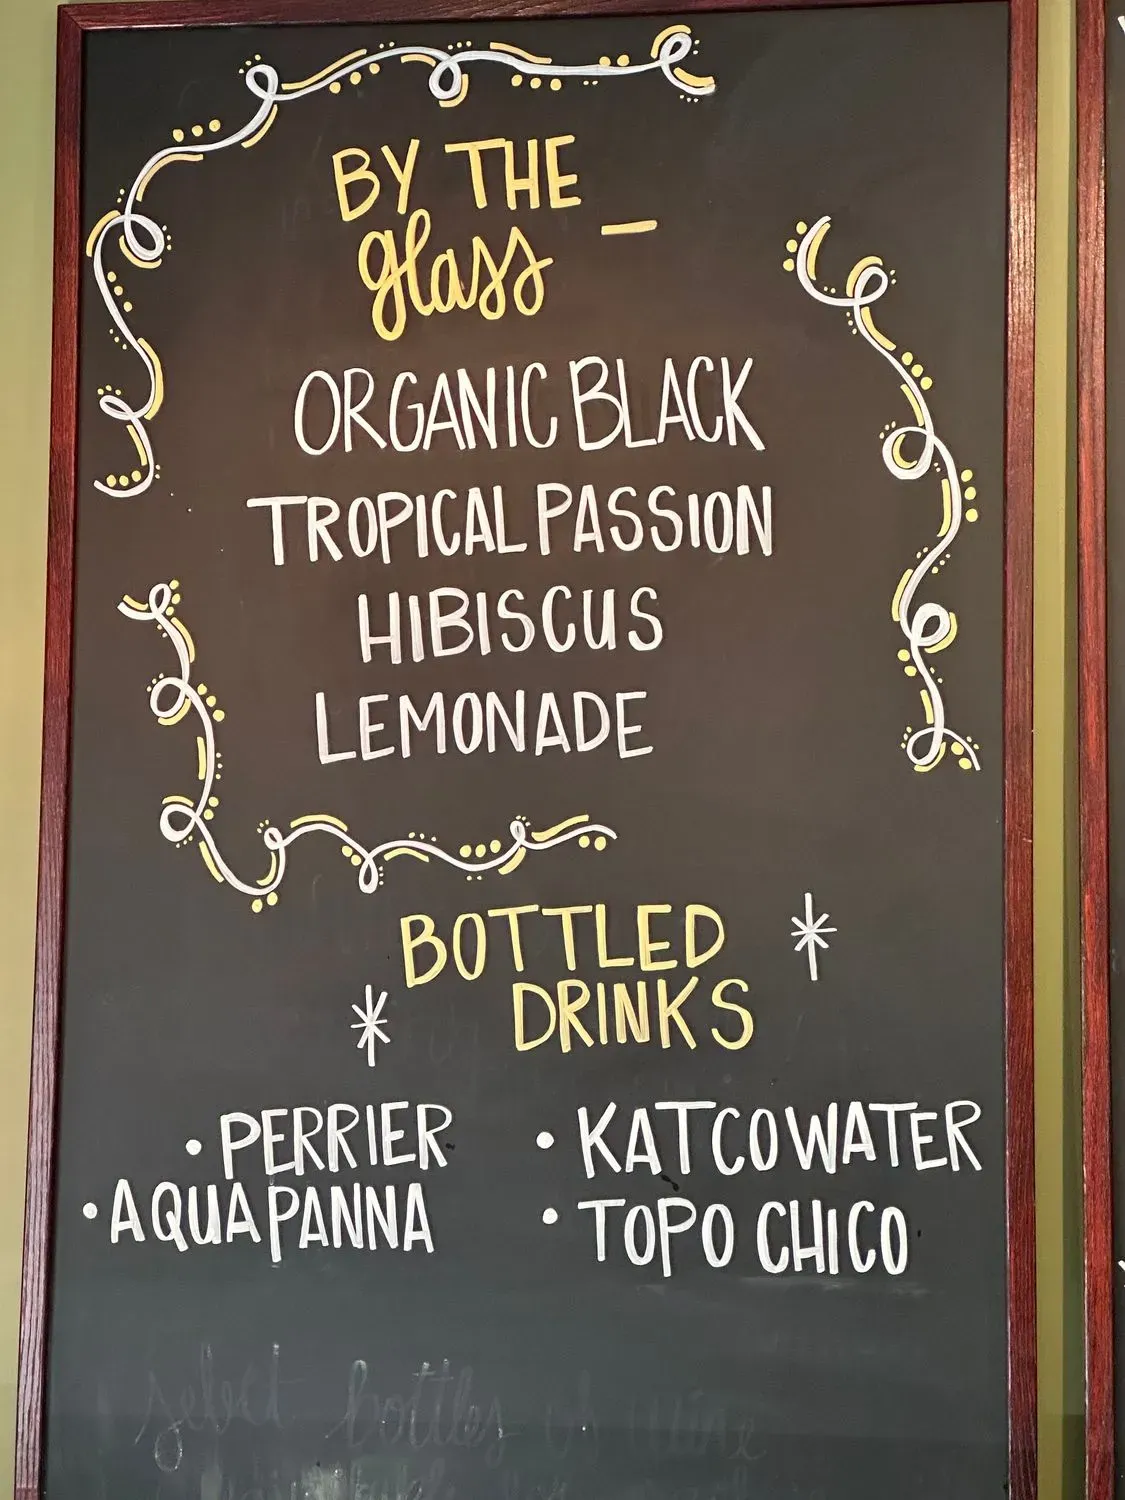 BY THE
glass
ORGANIC BLACK
TROPICAL PASSION
HIBISCUS
LEMONADE
BOTTLED
DRINKS
• PERRIER
• AQUA PANNA
• KATCO WATER
• TOPO CHICO
select bottles of wine